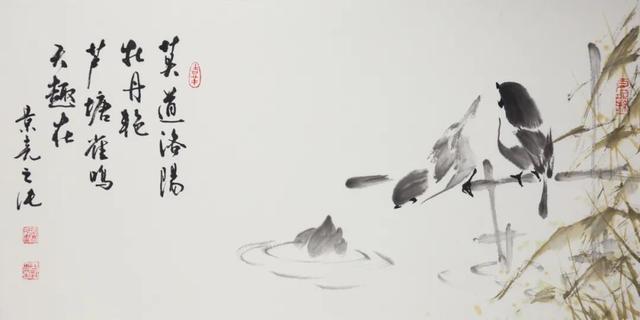 莫道洛陽
牡丹艳
芦塘雀鸣
天趣在
景尧之作